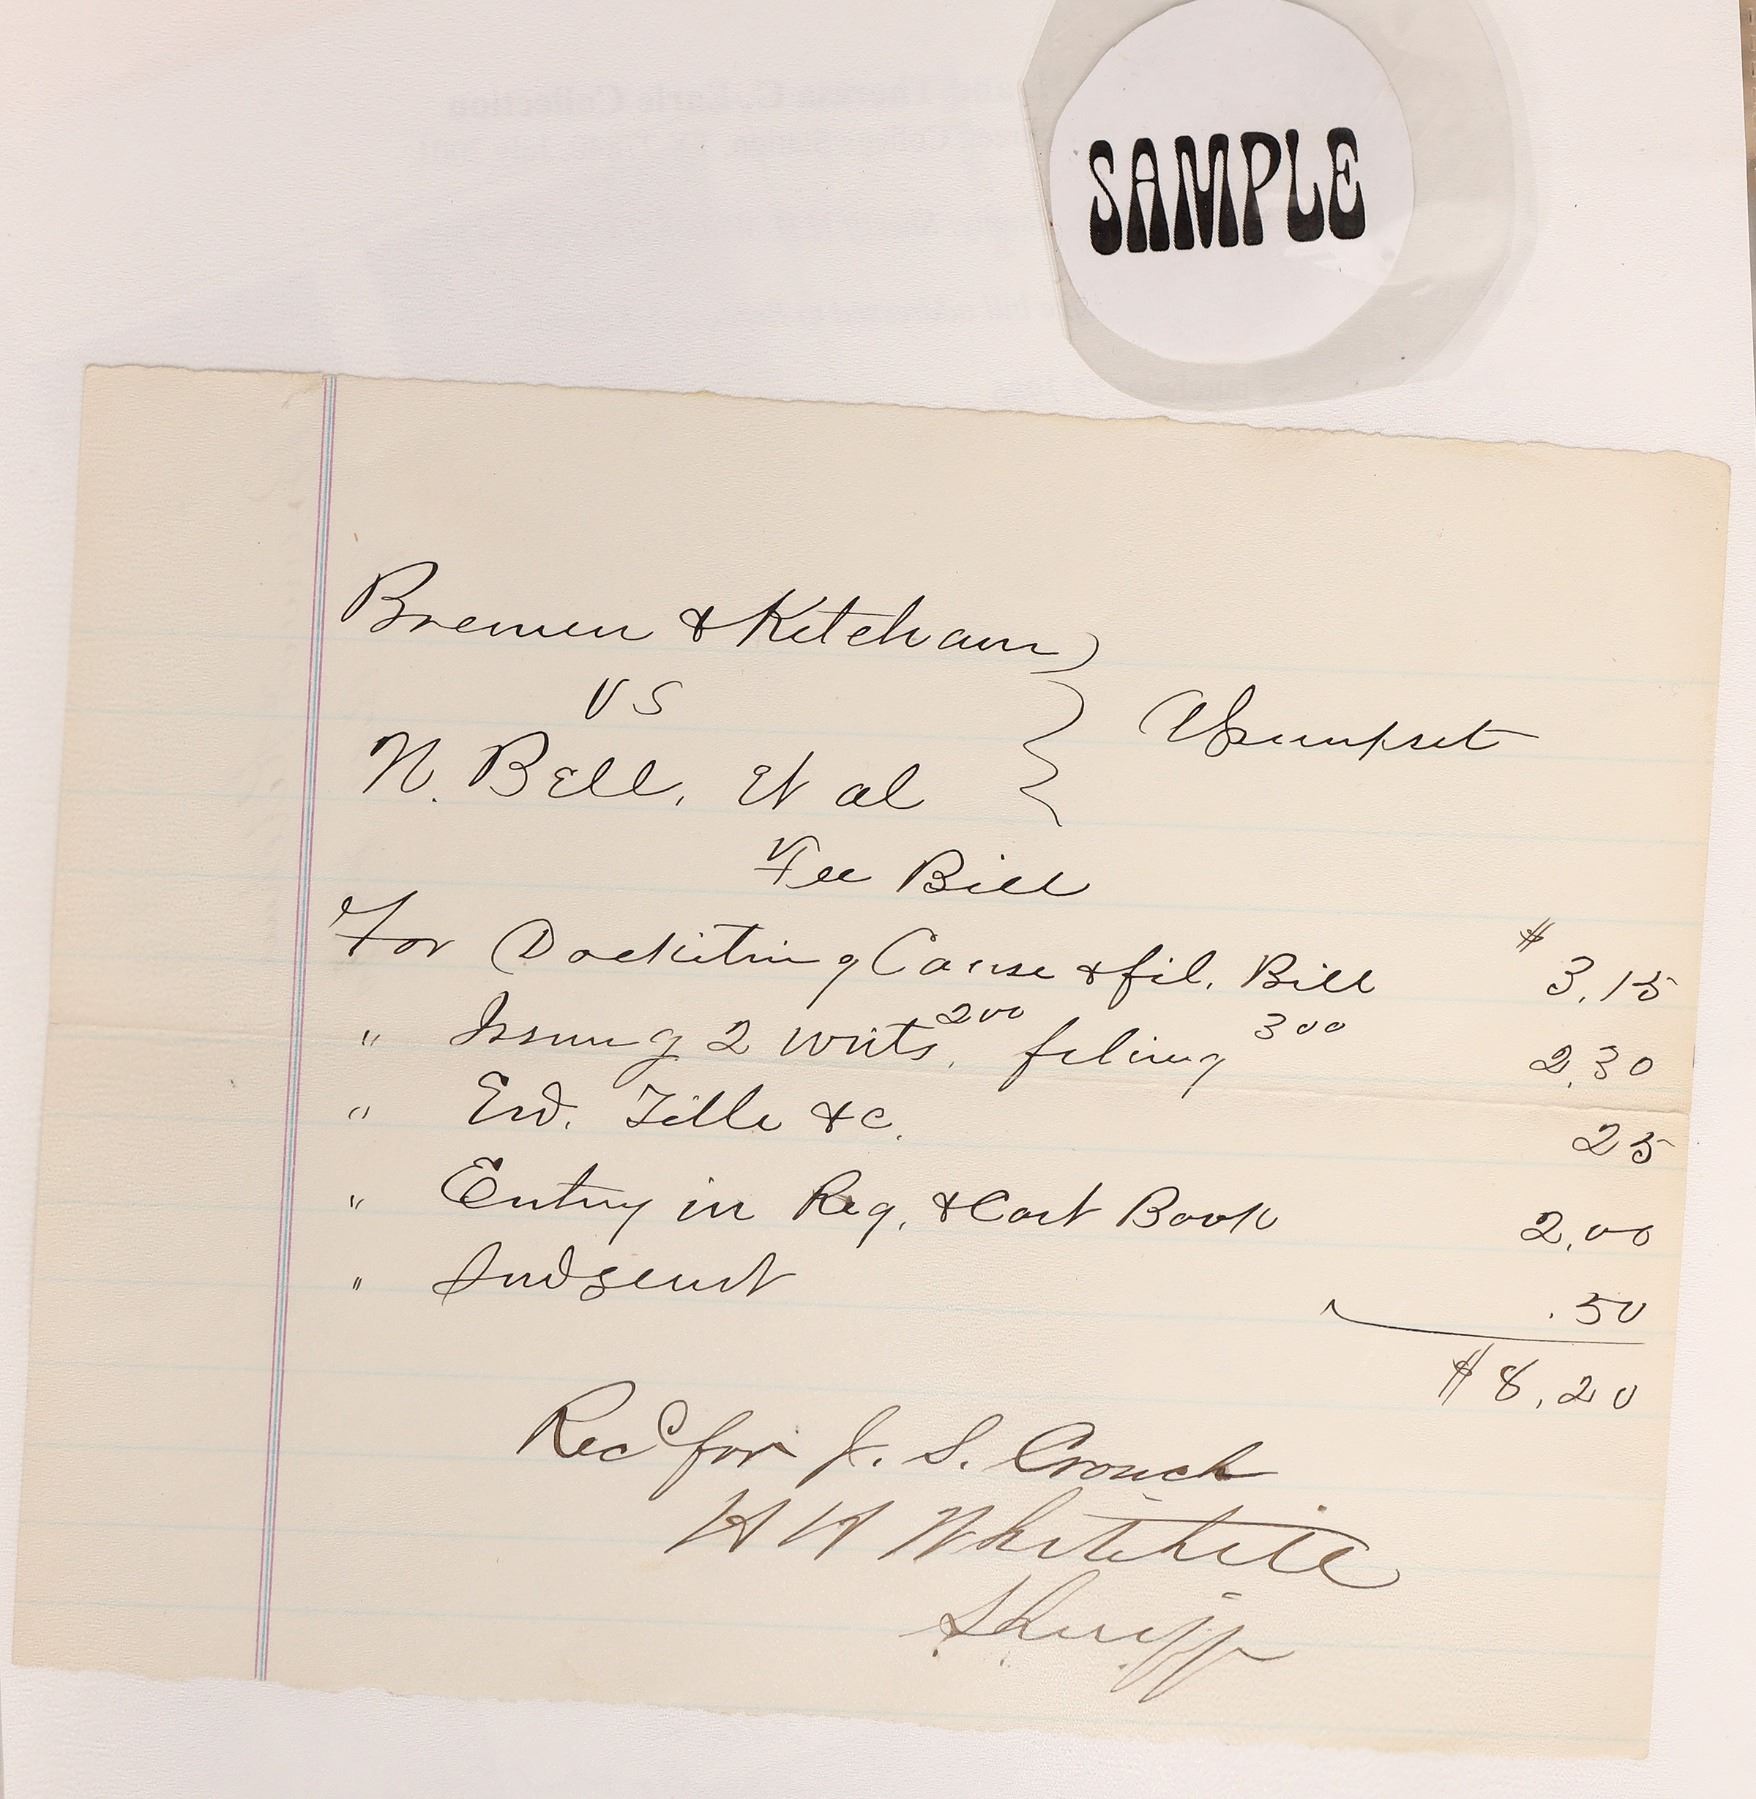 SAMPLE
Bremen & Ketcham
VS
Assumpset
N. Bell, Et al
Fee Bill
For Docketing Cause & fil. Bill $3.15
" Issuing 2 writs, 200 filing 300 2.30
" End. Title &c. 25
" Entry in Reg. & Cost Book 2.00
" Judgemt .50
$8.20
Recd for J. S. Crouch
H H Whitehill
Sheriff